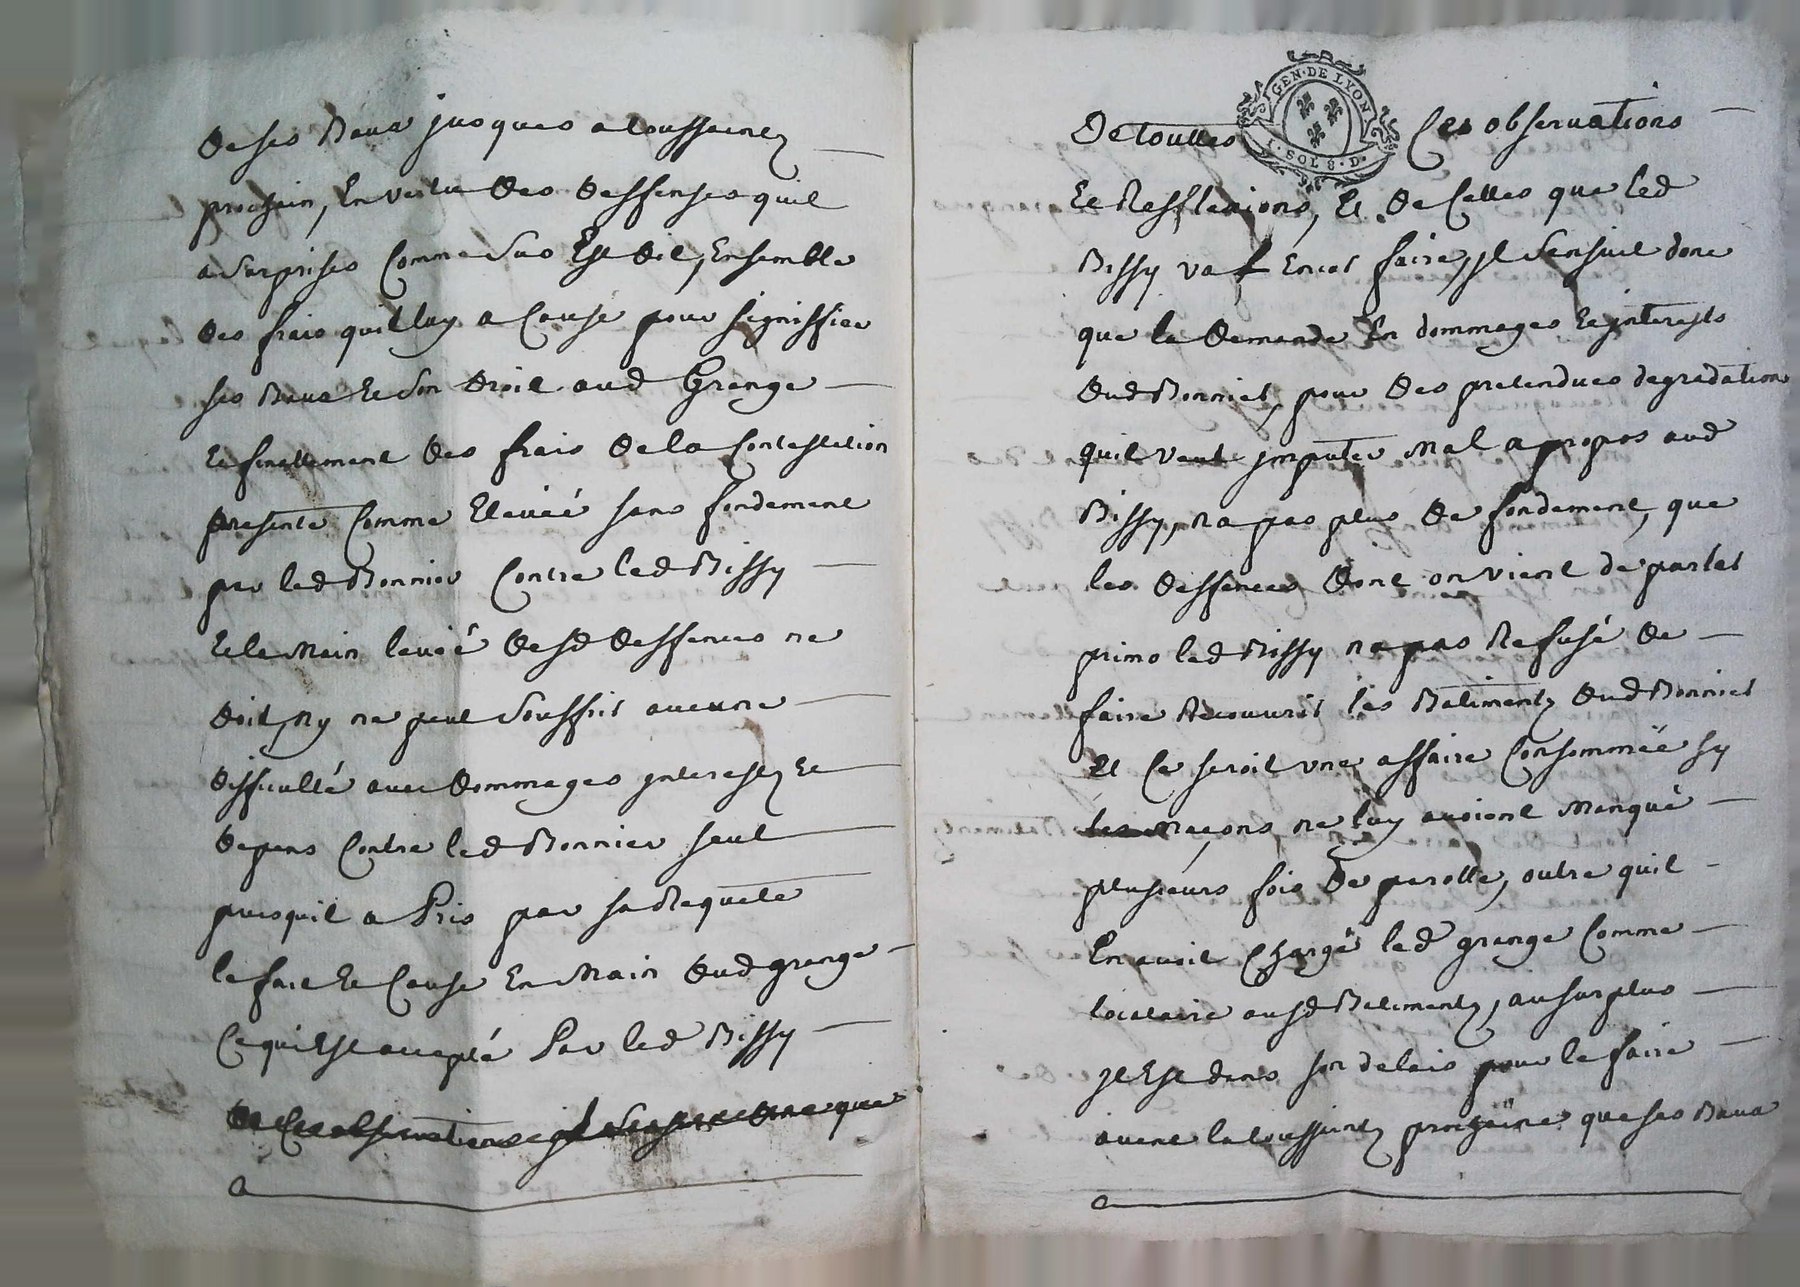 de ses Baux jusques a toussaintz
prochain, En vertu des deffenses quil
a surprises Comme dus Est dit, Ensemble
des frais quil luy a Cause pour signiffier
ses Baux et son droit aud Grange
et finallement des frais de la Contestation
presente Comme Elevéé sans fondement
par led Bonnier Contre led Bissy
et la main levéé desd deffences ne
doit, ny ne peut souffrir aucune
difficulté avec dommages interestz et
depens Contre led Bonnier seul
puisquil a Pris par sa Requete
le fait et Cause En main dud grange
Ce qui Est accepté Par led Bissy
de Ces observations il sensuit donc que
De touttes Ces observations
et Refflexions, Et de Celles que led
Bissy va Encor faire, jl sensuit donc
que la demande En dommages et jnterests
dud Bonnier, pour des pretendues degradations
quil veut jmputer mal a propos aud
Bissy, na pas plus de fondement, que
les deffences dont on vient de parler
primo led Bissy na pas Refusé de
faire Recouvrir les Batimentz dud Bonnier
Et Ce seroit vne affaire Consomméé sy
les maçons ne luy avoient manqué
plusieurs fois de parolle, outre quil
En avoit Chargé led grange Comme
locataire ausd Batimentz, au surplus
jl Est dans son delais pour le faire
avant la toussaintz prochaine que ses Baux
GEN · DE LYON
I · SOL 8 · D ·